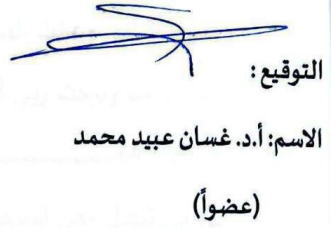 التوقيع:
الاسم: أ.د. غسان عبيد محمد
(عضواً)